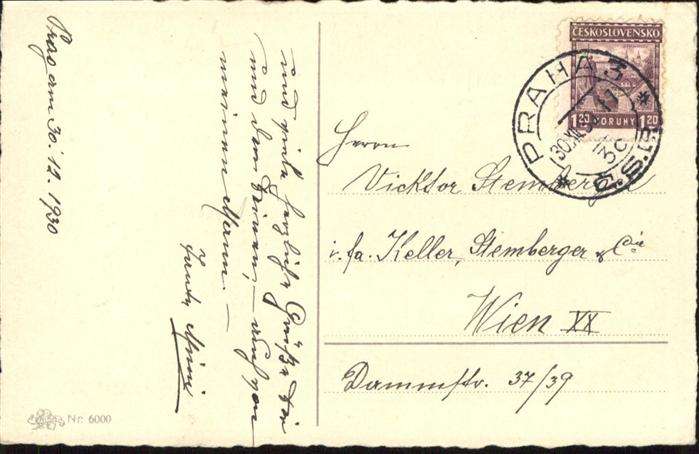 Prag am 30. 12. 1930
und viele herzliche Grüße Dir
und den Deinen, – auch von
meinem Mann. –
Tante
Nr. 6000
ČESKOSLOVENSKO
1 20 KORUNY 1 20
* PRAHA 3 * Č.S.R.
30.XII.30
Herrn
Vicktor Stemberger
i. fa. Keller, Stemberger & Cie
Wien XX
Dammstr. 37/39